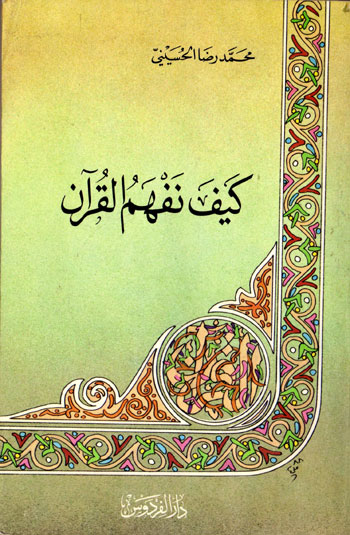 محمد رضا الحسيني
كَيفَ نَفْهَمُ القُرآن
دار الفردوس